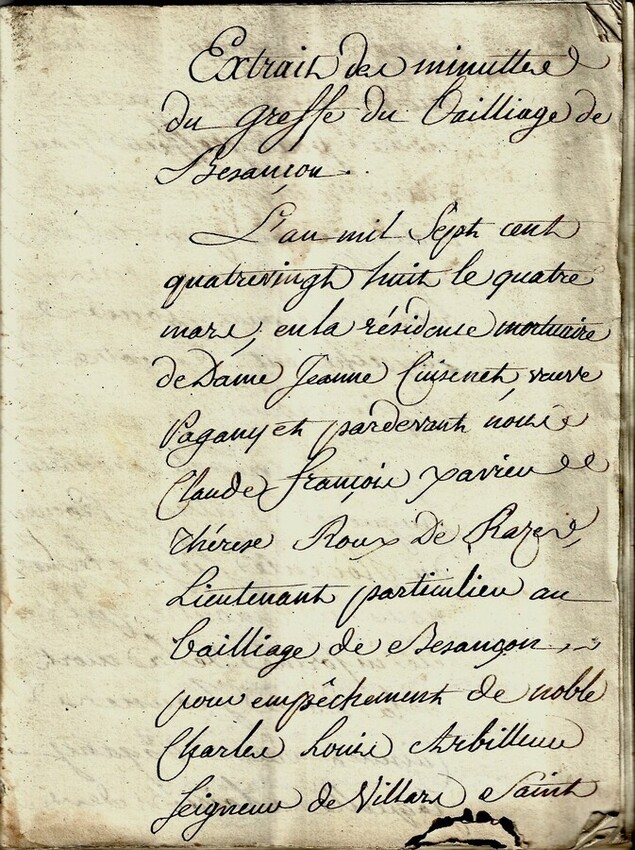 Extrait des minuttes
du greffe du bailliage de
Besançon.
L'an mil sept cent
quatrevingt huit le quatre
mars, en la résidence mortuaire
de Dame Jeanne Cuisenet, veuve
Pagany et pardevant nous
Claude françois xavier
thérèse Roux De Raze,
Lieutenant particulier au
bailliage de Besançon
pour empêchement de noble
Charles Louis Arbilleur
Seigneur de Villars Saint